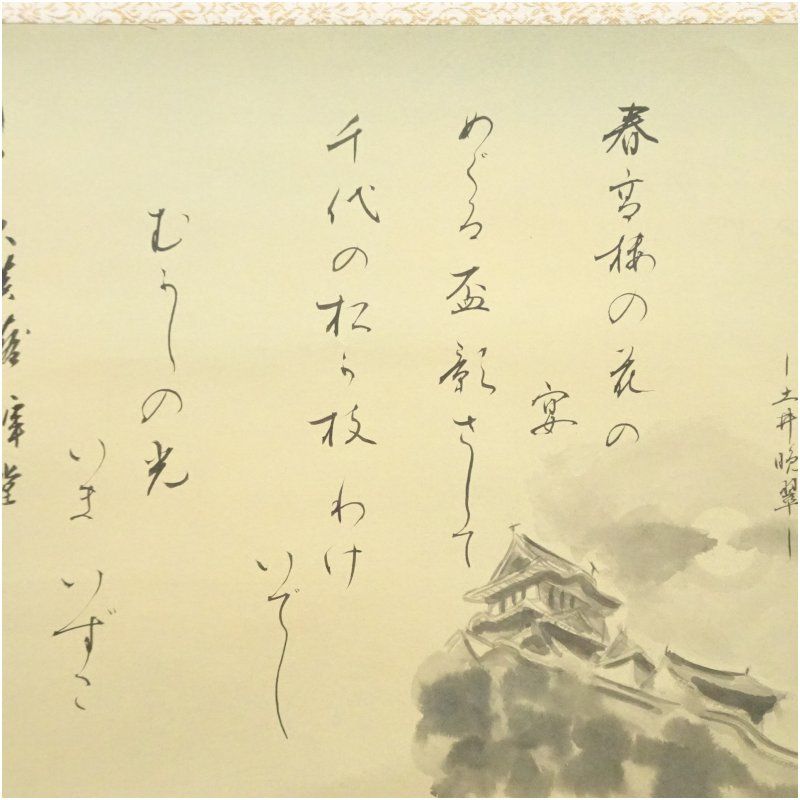 ー土井晩翠ー
春高楼の花の
宴
めぐる盃影さして
千代の松か枝わけ
いでし
むかしの光
いまいずこ